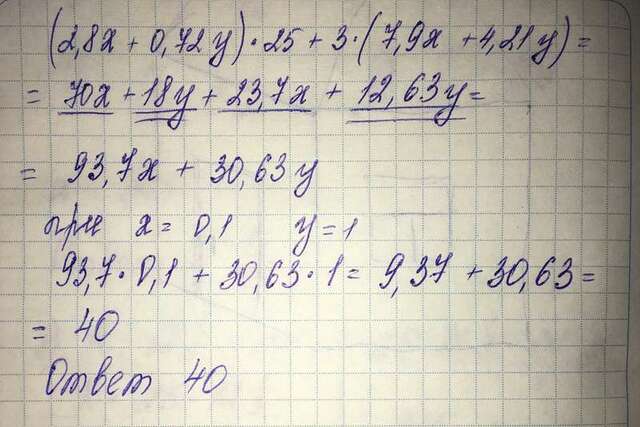 (2,8x + 0,72y)·25 + 3·(7,9x + 4,21y) =
= 70x + 18y + 23,7x + 12,63y =
= 93,7x + 30,63y
при x = 0,1 y = 1
93,7·0,1 + 30,63·1 = 9,37 + 30,63 =
= 40
Ответ 40